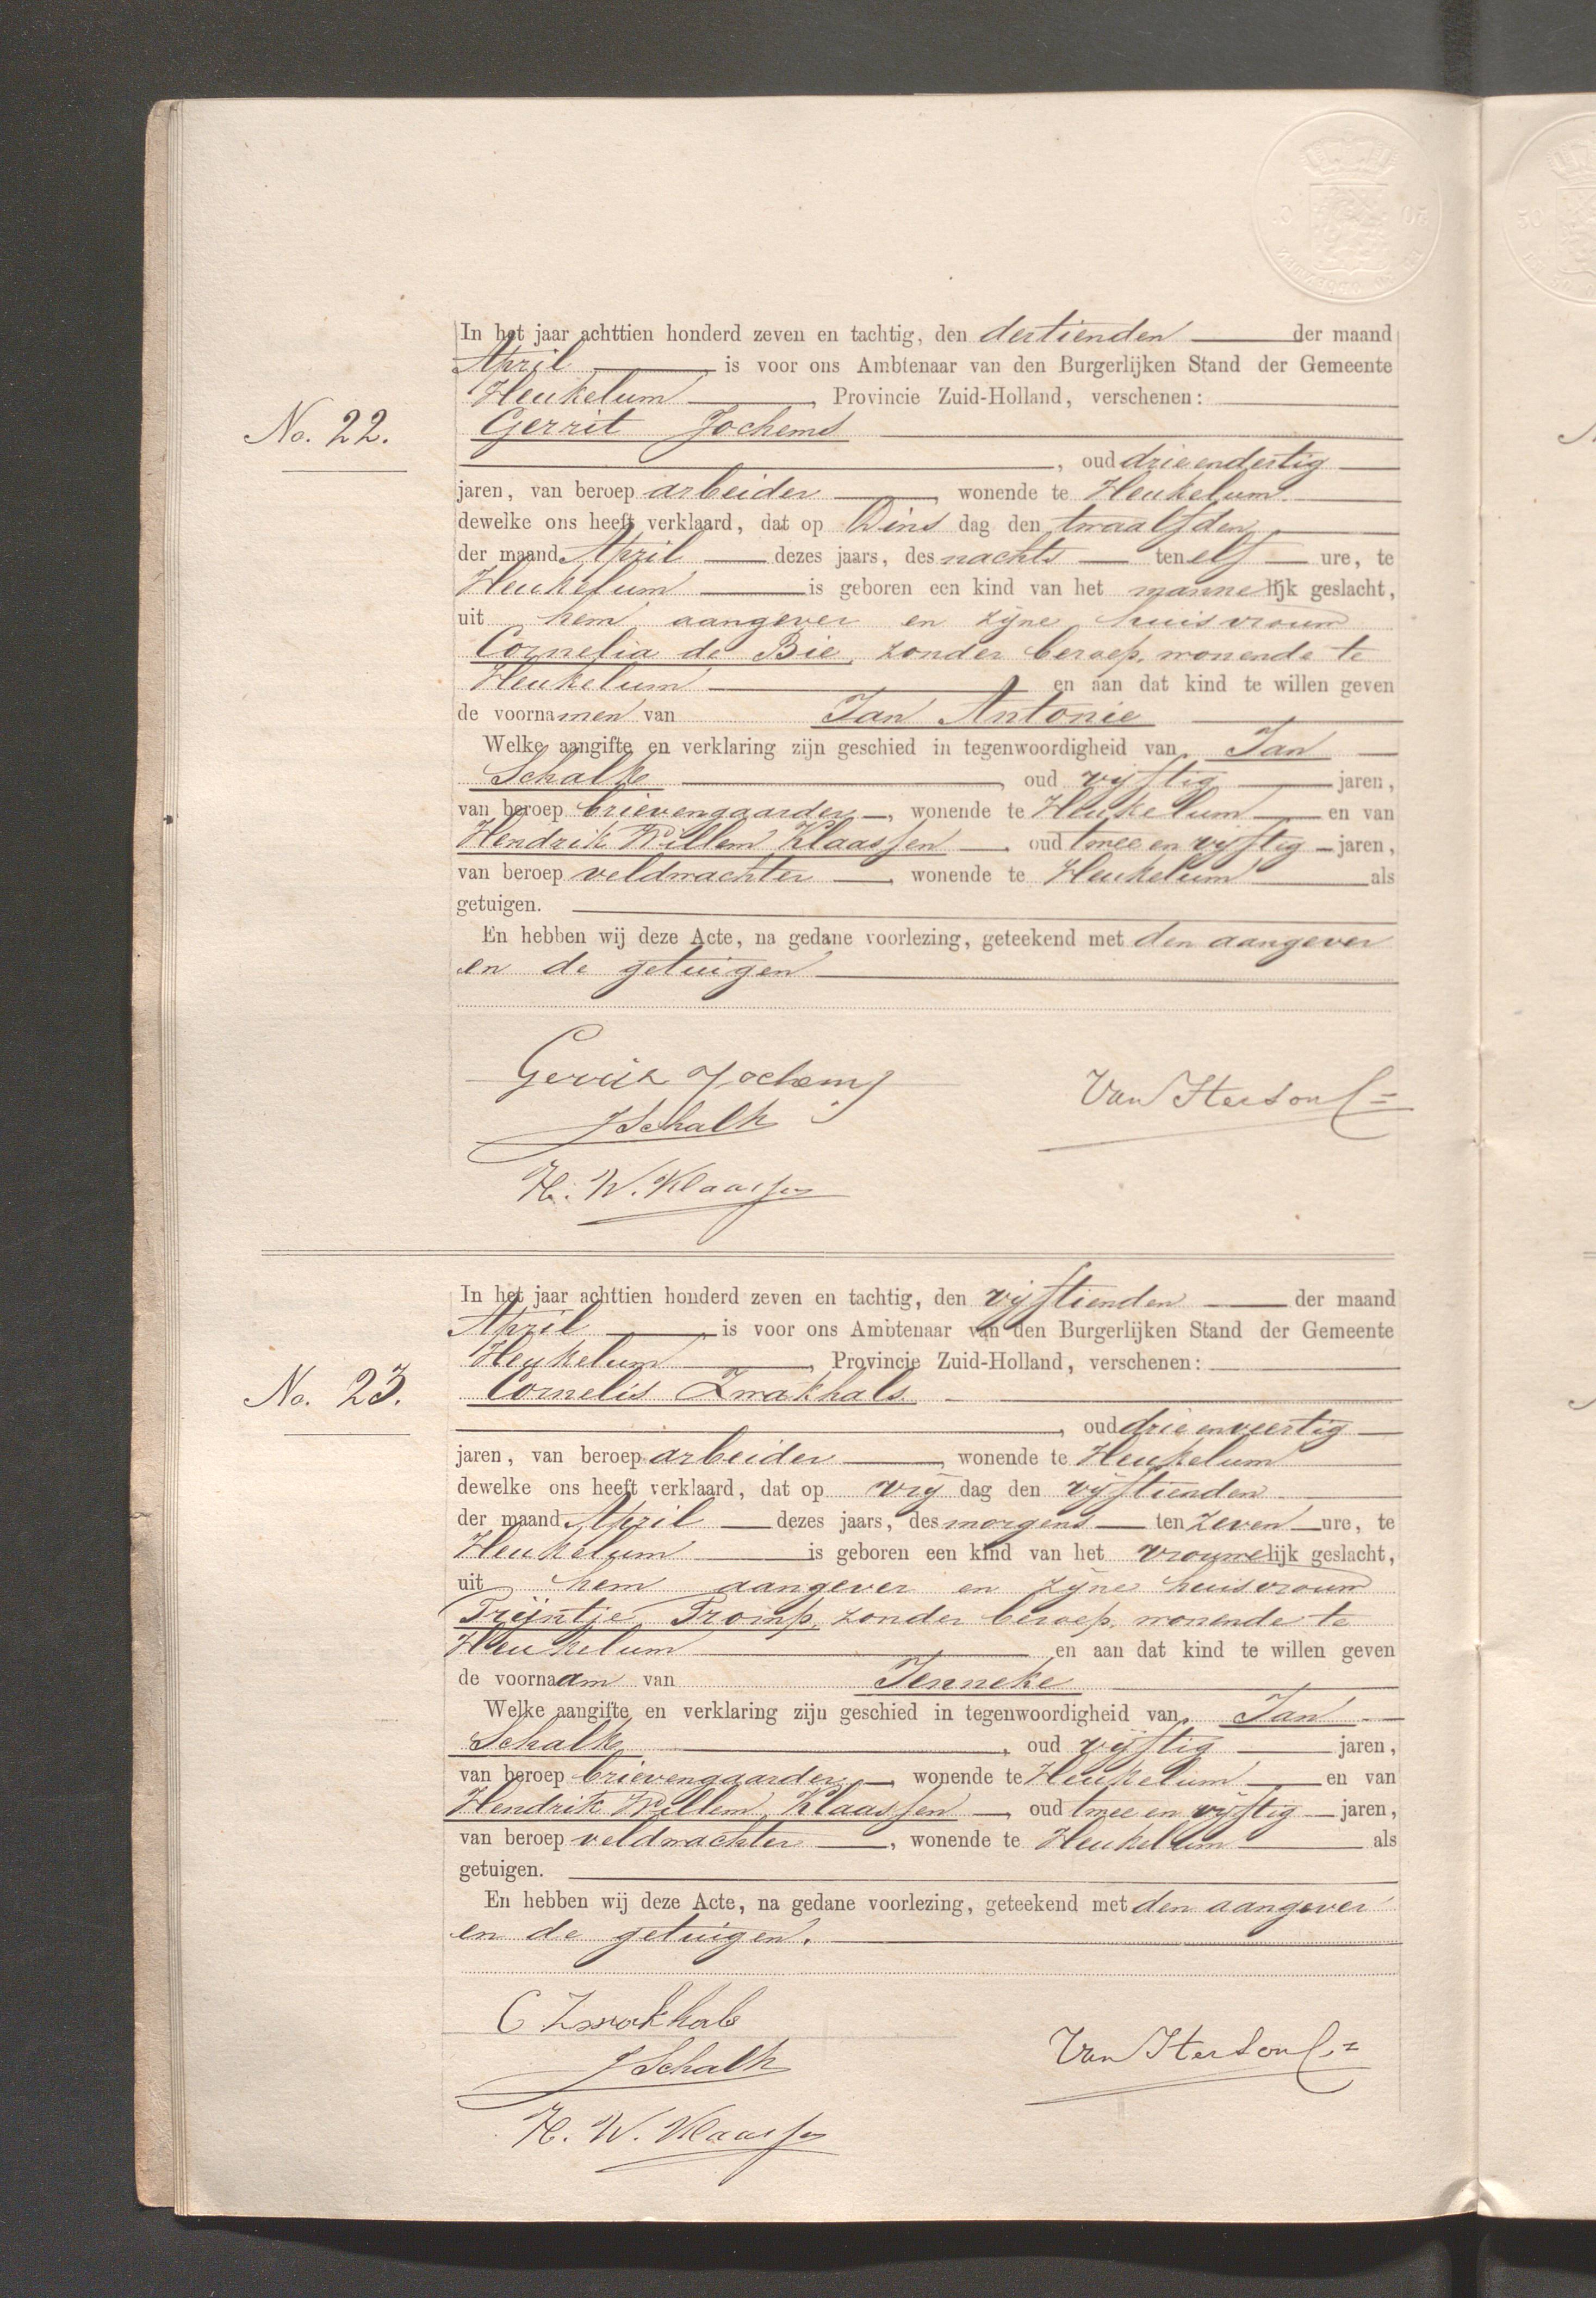 In het jaar achttien honderd zeven en tachtig, den dertienden der maand
April is voor ons Ambtenaar van den Burgerlijken Stand der Gemeente
Heukelum, Provincie Zuid-Holland, verschenen:
No. 22. Gerrit Jochems
, oud drieendertig
jaren, van beroep arbeider, wonende te Heukelum
dewelke ons heeft verklaard, dat op Dins dag den twaalfden
der maand April dezes jaars, des nachts ten elf ure, te
Heukelum is geboren een kind van het mannelijk geslacht,
uit hem aangever en zijne huisvrouw
Cornelia de Bie, zonder beroep, wonende te
Heukelum en aan dat kind te willen geven
de voornamen van Jan Antonie
Welke aangifte en verklaring zijn geschied in tegenwoordigheid van Jan
Schalk, oud vijftig jaren,
van beroep brievengaarder, wonende te Heukelum en van
Hendrik Willem Klaassen, oud twee en vijftig jaren,
van beroep veldwachter, wonende te Heukelum als
getuigen.
En hebben wij deze Acte, na gedane voorlezing, geteekend met den aangever
en de getuigen
Gerrit Jochems
J Schalk
H. W. Klaassen
In het jaar achttien honderd zeven en tachtig, den vijftienden der maand
April, is voor ons Ambtenaar van den Burgerlijken Stand der Gemeente
Heukelum, Provincie Zuid-Holland, verschenen:
No. 23. Cornelis Zwakhals
, oud drie en veertig
jaren, van beroep arbeider, wonende te Heukelum
dewelke ons heeft verklaard, dat op vrij dag den vijftienden
der maand April dezes jaars, des morgens ten zeven ure, te
Heukelum is geboren een kind van het vrouwelijk geslacht,
uit hem aangever en zijne huisvrouw
Trijntje Tromp, zonder beroep, wonende te
Heukelum en aan dat kind te willen geven
de voornaam van Jenneke
Welke aangifte en verklaring zijn geschied in tegenwoordigheid van Jan
Schalk, oud vijftig jaren,
van beroep brievengaarder, wonende te Heukelum en van
Hendrik Willem Klaassen, oud twee en vijftig jaren,
van beroep veldwachter, wonende te Heukelum als
getuigen.
En hebben wij deze Acte, na gedane voorlezing, geteekend met den aangever
en de getuigen.
C Zwakhals
J Schalk
H. W. Klaassen